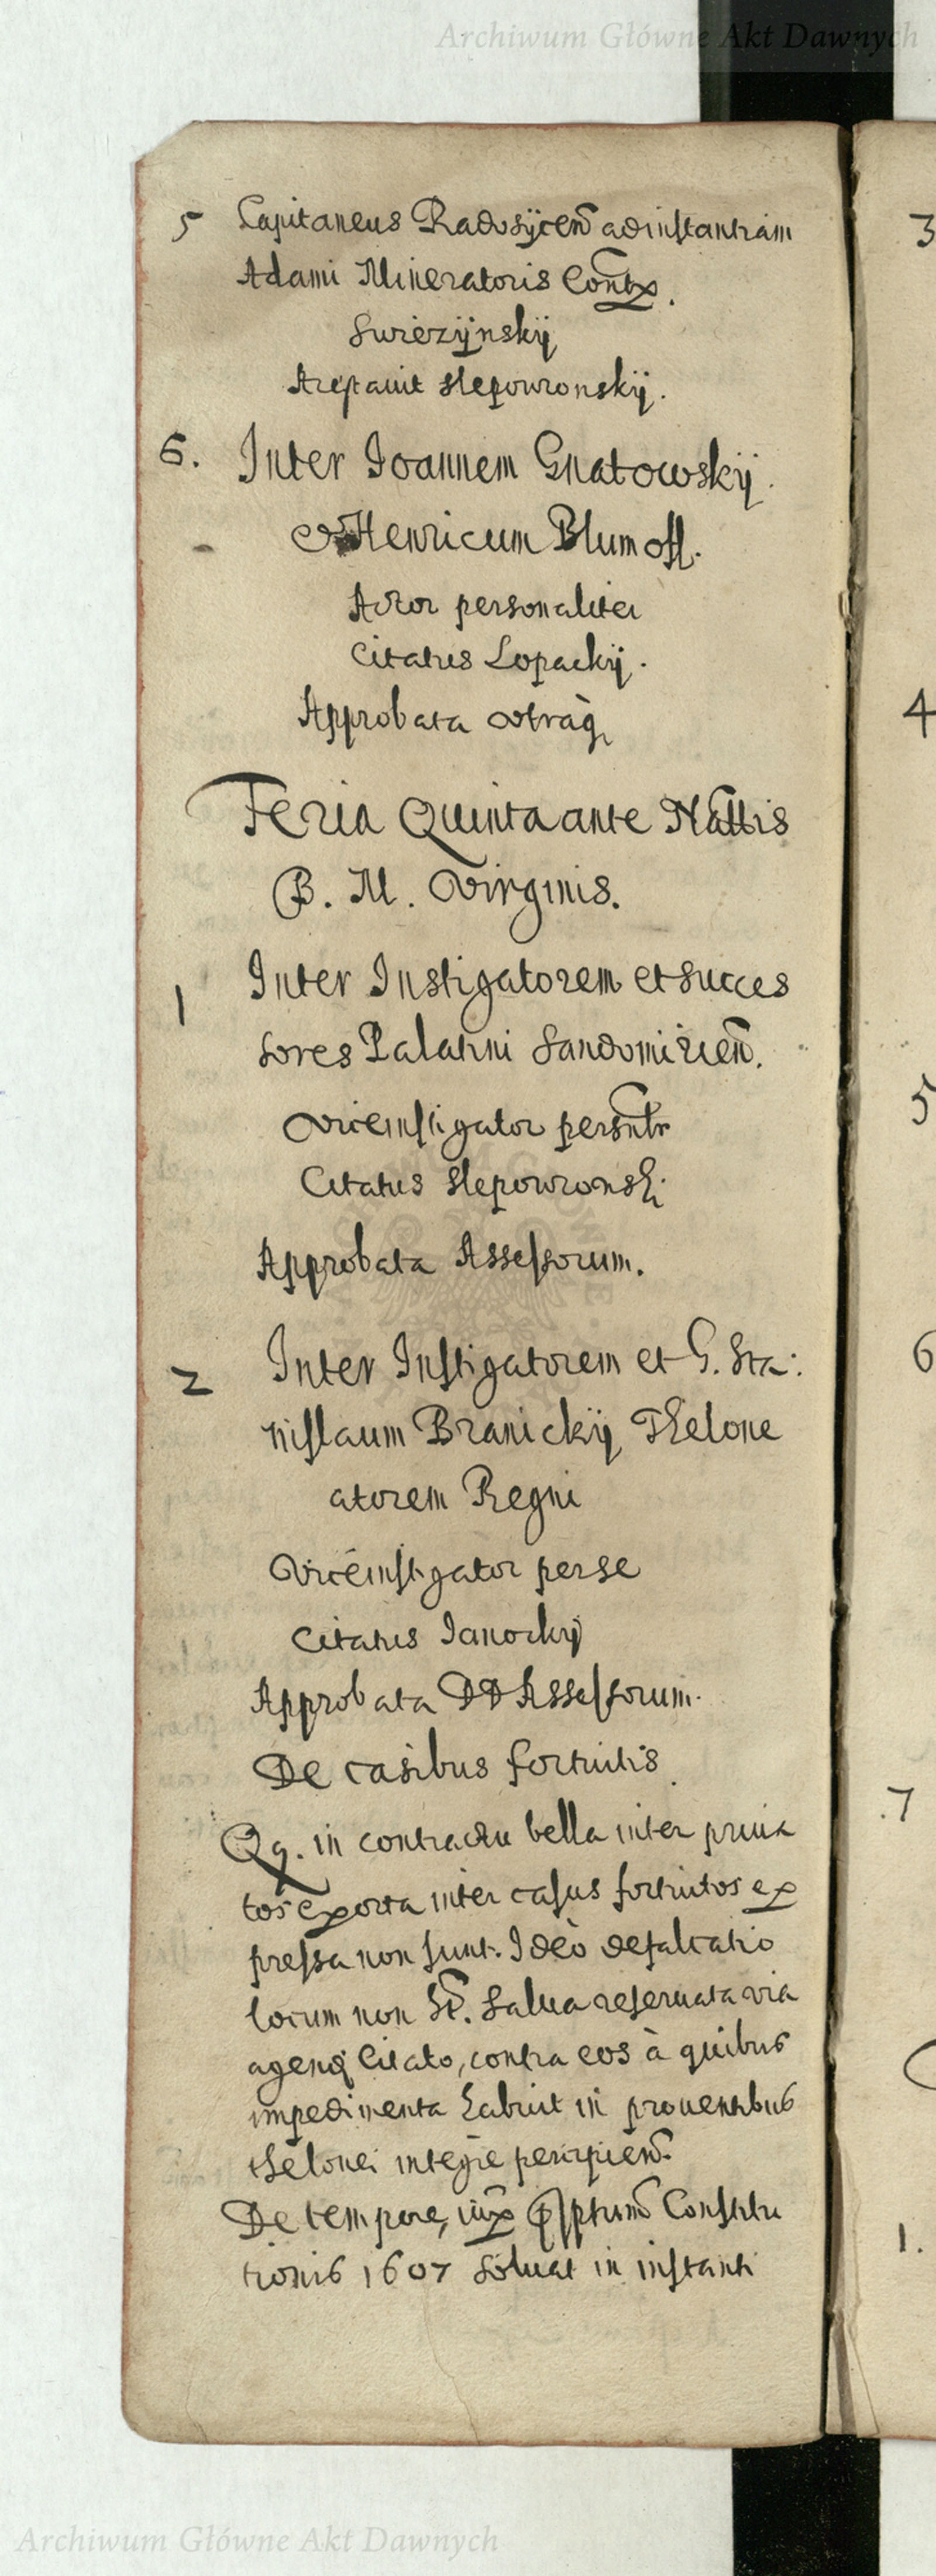 Archiwum Główne Akt Dawnych
5 Capitaneus Radosÿcen̄ ad instantiam
Adami Mineratoris Contx.
Swiezÿnskÿ
Slepowronskÿ.
6. Inter Ioannem Gnatowskÿ.
et Henricum Blum off.
Actor personaliter
Citatus Lopackÿ.
Approbata vtraq
Feria Quinta ante Nattis
B. M. Virginis.
1 Inter Instigatorem et succes
sores Palatini Sandomirien̄.
Viceinstigator persnlr
Citatus Slepowronski
Approbata Assessorum.
2 Inter Instigatorem et G. Sta:
nislaum Branickÿ Thelone
atorem Regni
Viceinstigator per se
Citatus Janockÿ
Approbata DD Assessorum.
De casibus fortuitis
Qz. in contractu bella inter priua
tos exorta inter casus fortuitos ex
pressa non sunt. Ideò defalcatio
locum non ht. Salua reseruata via
agend Citato, contra eos à quibus
impedimenta habuit in prouentibus
thelonei integre percipien̄.
De tempore, iux Constitu
tionis 1607 soluat in instanti
3
4
5
6
.7
1.
Archiwum Główne Akt Dawnych